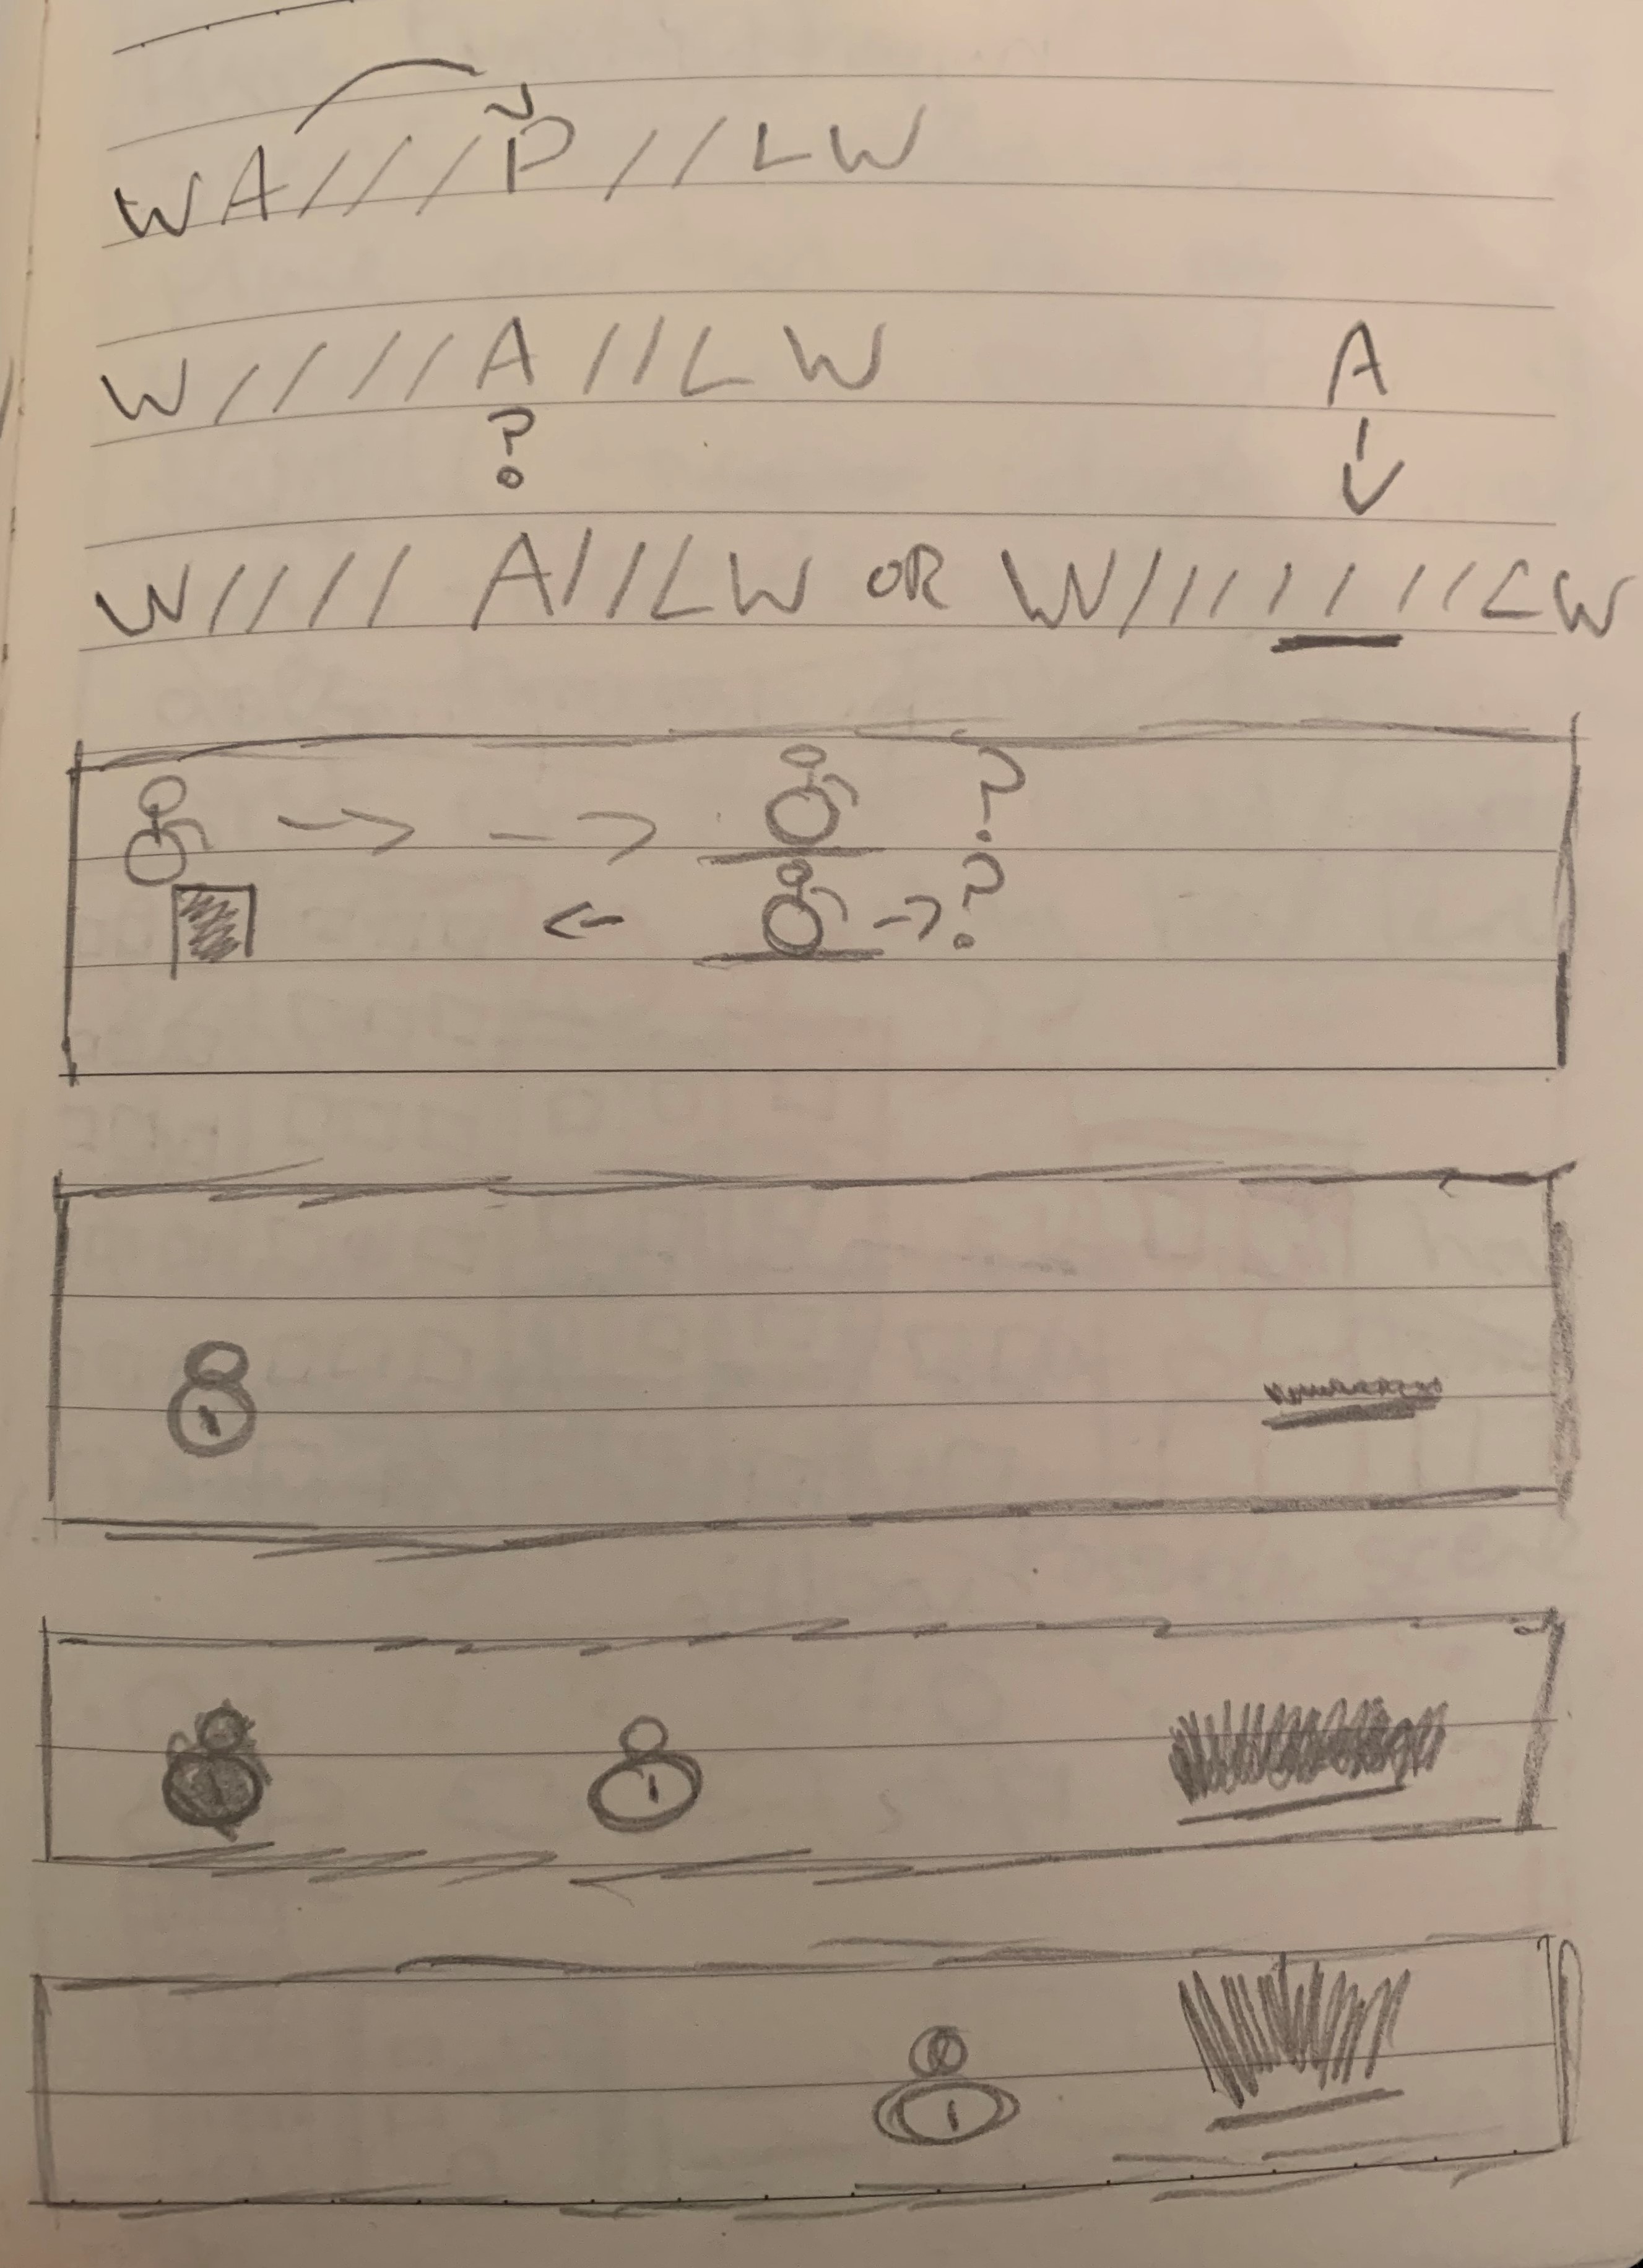 WA///P//LW
W////A//LW A
?
W////A///LW OR W////////LW
?
?